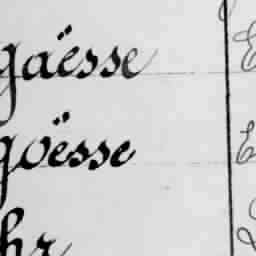 gaësse
goësse
hr